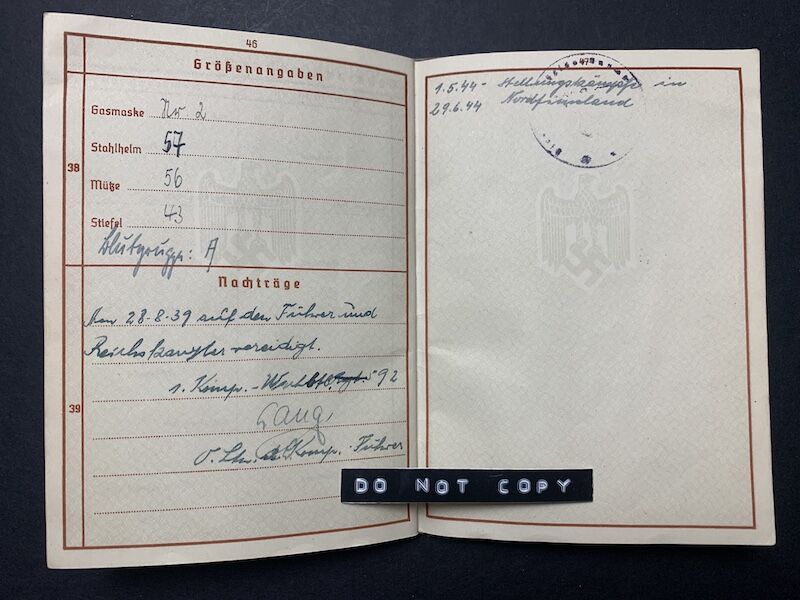 46
Größenangaben
Gasmaske Nr. 2
Stahlhelm 57
38
Mütze 56
Stiefel 43
Blutgruppe: A
Nachträge
Am 28.8.39 auf den Führer und
Reichskanzler vereidigt.
1. Komp. 92
39
Lang
Komp. Führer
47
1.5.44 - Stellungskämpfe in
29.6.44 Nordfinnland
DO NOT COPY